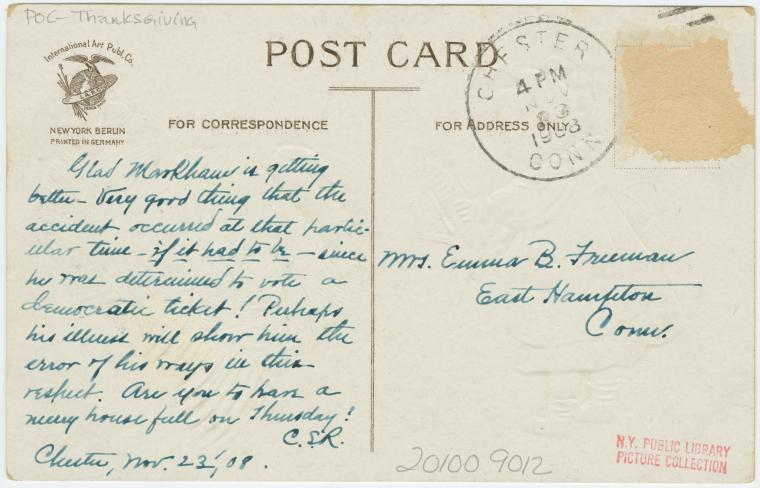 POC-Thanksgiving
International Art Publ. Co.
NEW YORK BERLIN
PRINTED IN GERMANY
POST CARD
FOR CORRESPONDENCE
FOR ADDRESS ONLY
CHESTER
4 PM
NOV
23
1908
CONN
Glad Markham is getting
better - Very good thing that the
accident occurred at that partic-
ular time - if it had to be - since
he was determined to vote a
democratic ticket! Perhaps
his illness will show him the
error of his ways in this
respect. Are you to have a
merry house full on Thursday!
C.S.R.
Chester, Nov. 23, '08.
Mrs. Emma B. Freeman
East Hampton
Conn.
20100 9012
N.Y. PUBLIC LIBRARY
PICTURE COLLECTION